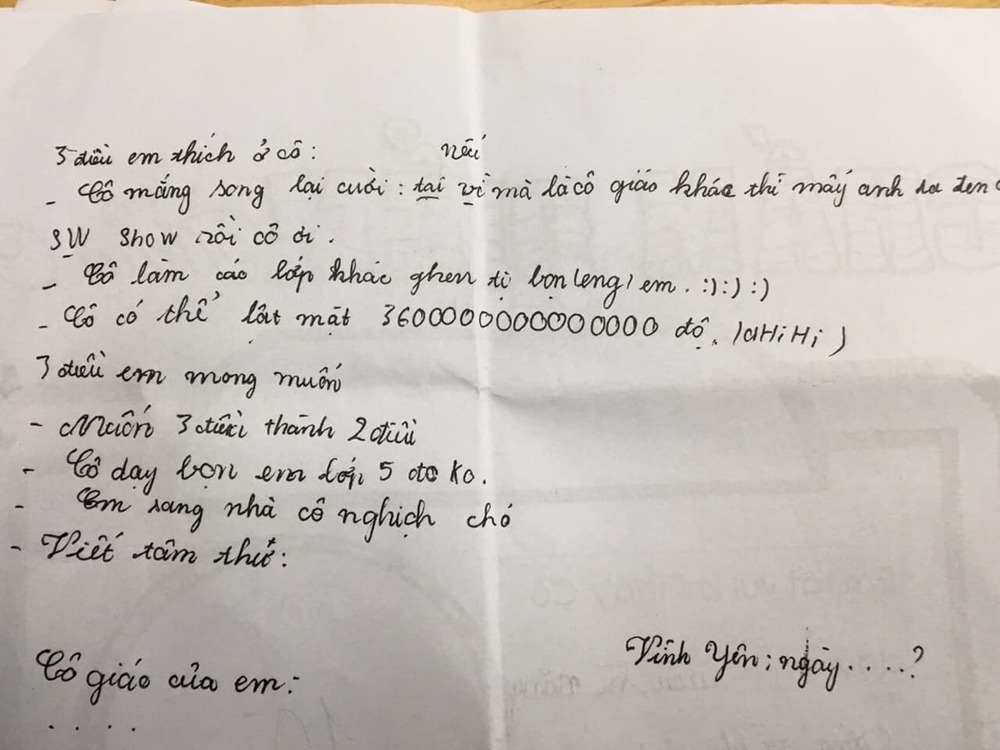 3 điều em thích ở cô:
nếu
- Cô mắng song lại cười: tại vì mà là cô giáo khác thì mấy anh da đen
SW show rồi cô ơi.
- Cô làm các lớp khác ghen tị bọn (eng) em. :) :) :)
- Cô có thể lật mặt 36000000000000000 độ. (aHiHi)
3 điều em mong muốn
- Muốn 3 điều thành 2 điều
- Cô dạy bọn em lớp 5 đc ko.
- Em sang nhà cô nghịch chó
- Viết tâm thư:
Vĩnh Yên; ngày....?
Cô giáo của em:
. . . .